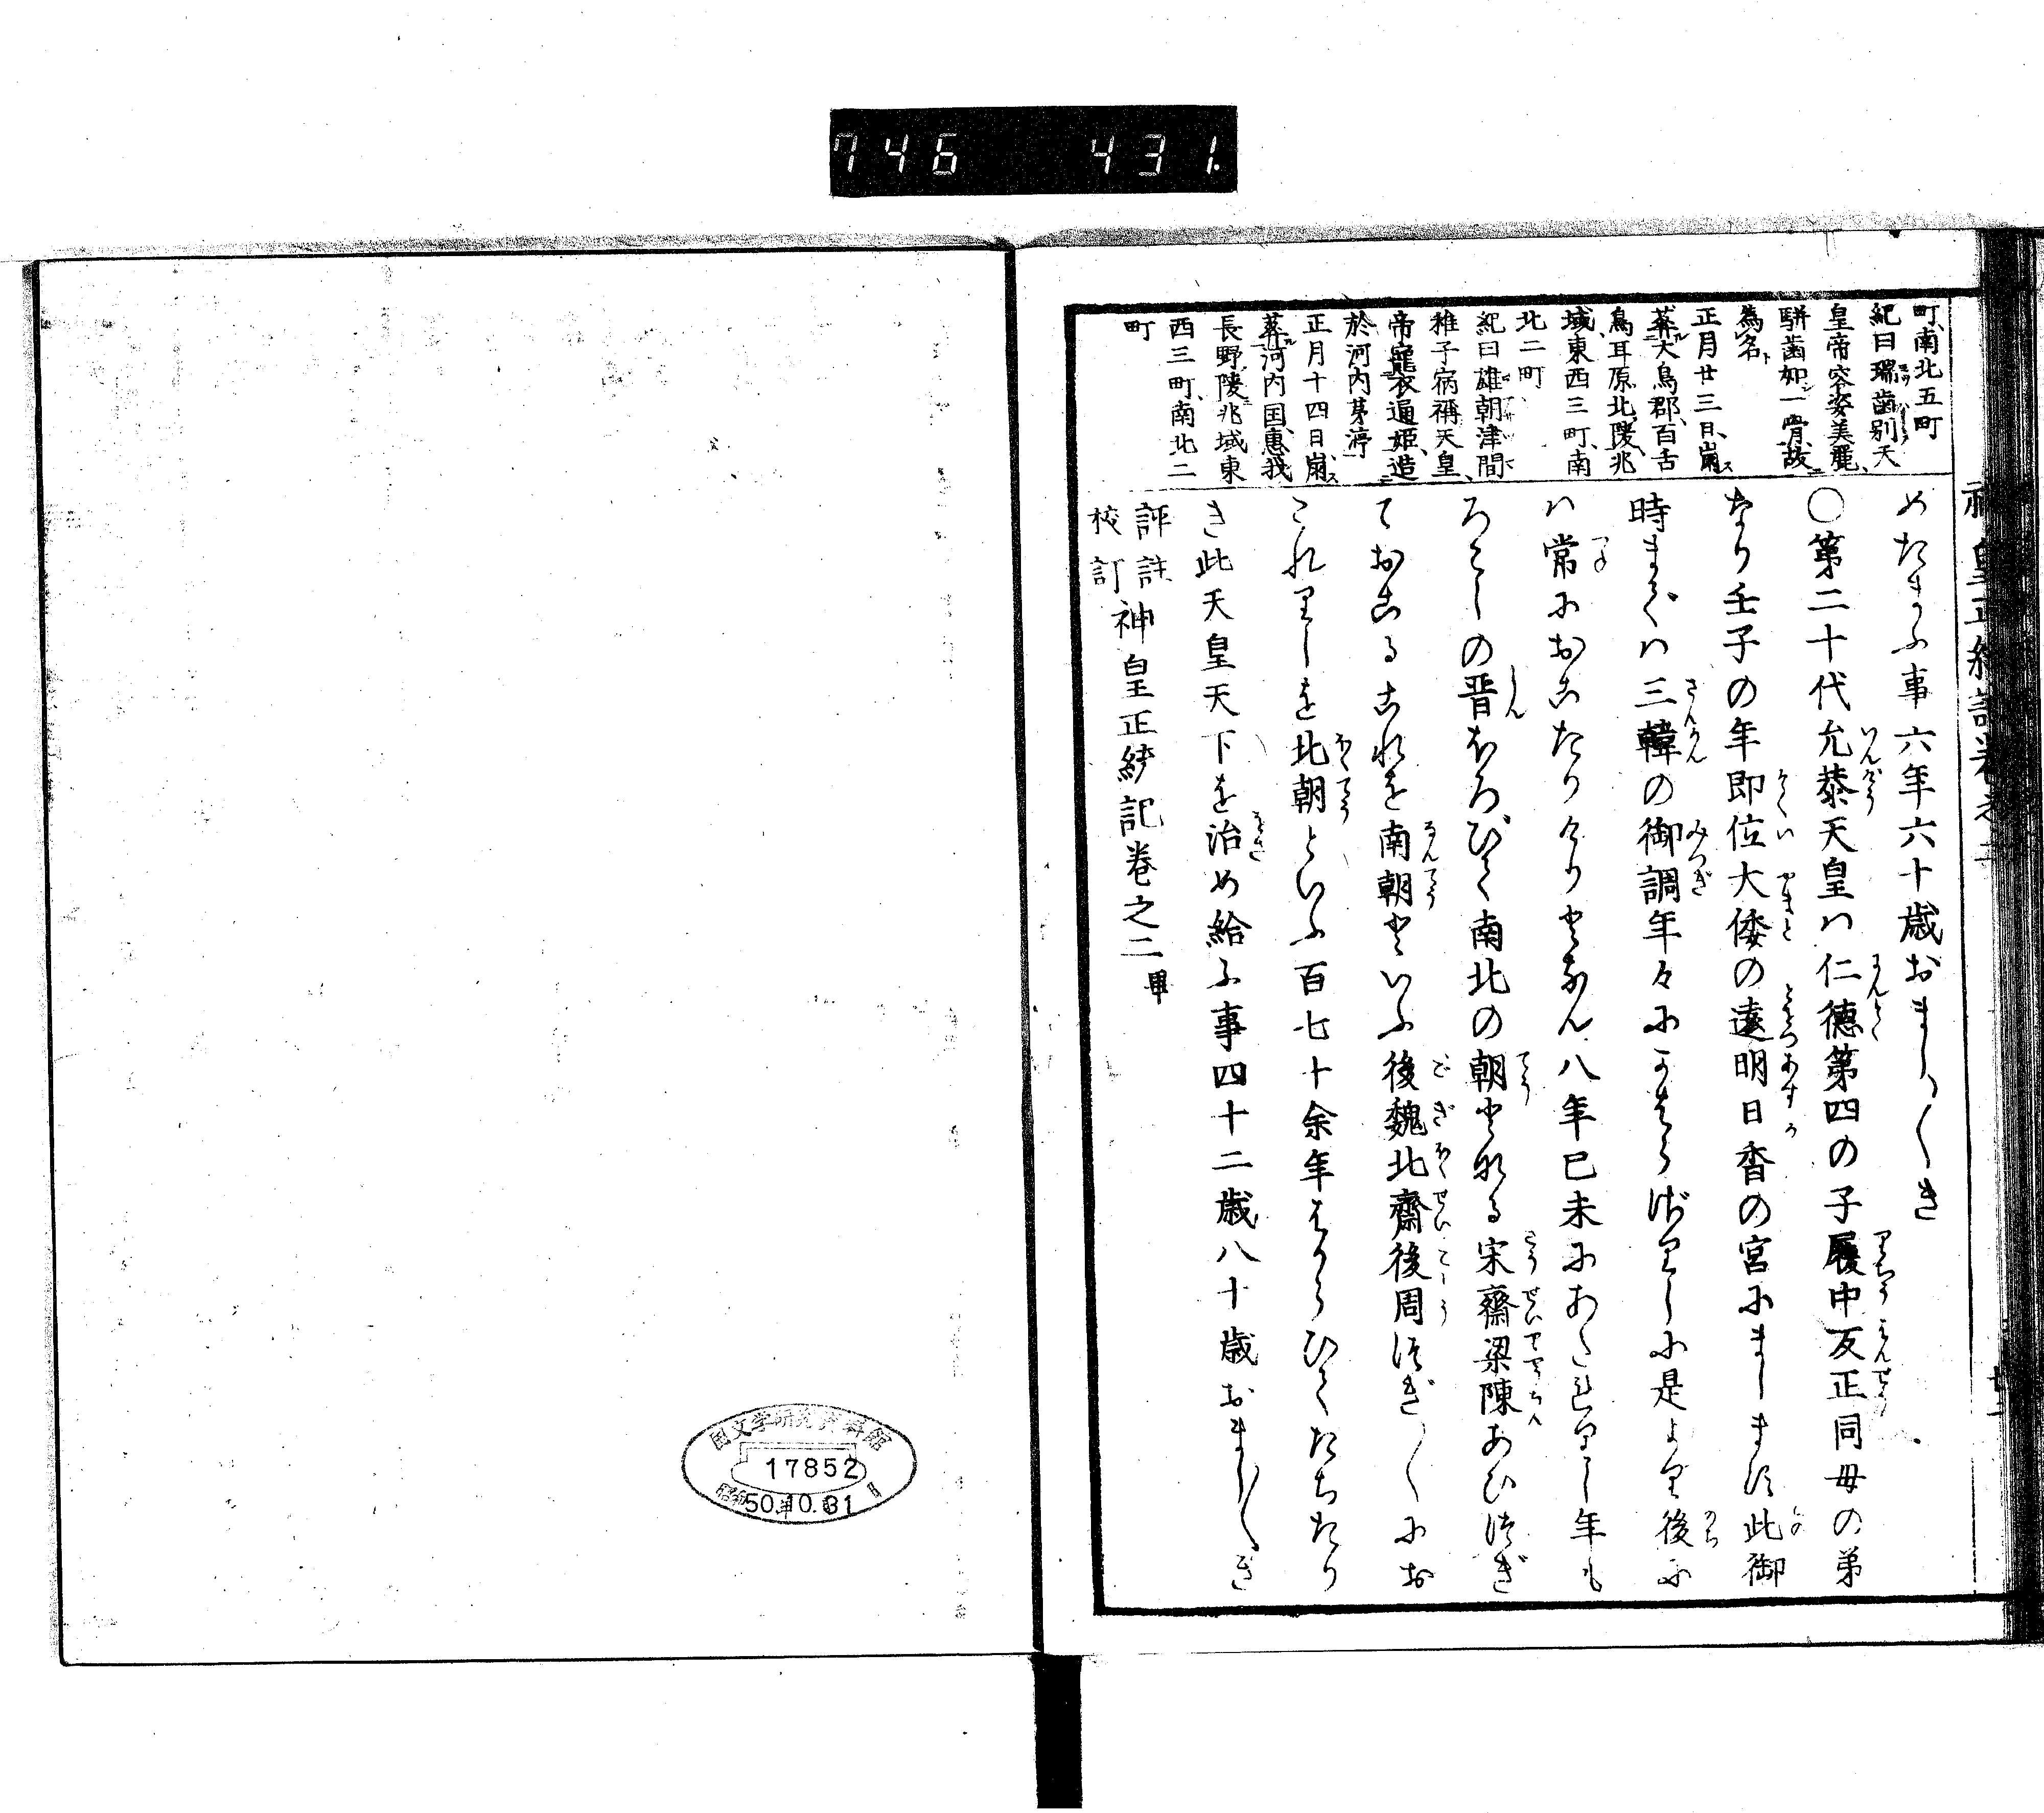 746 431
町、南北五町
紀曰瑞歯別天
皇帝容姿美麗、
駢歯如一骨、故
為名
正月廿三日、崩ス
葬大鳥郡、百舌
鳥耳原北陵、兆
域、東西三町、南
北二町
紀曰雄朝津間
稚子病禱天皇、
帝寵衣通姫、造
於河内茅渟
正月十四日、崩ス
葬河内国、惠我
長野陵、兆域東
西三町、南北二
町
めたまふ事六年六十歳おまし〱き
〇第二十代允恭天皇ハ仁徳第四の子履中反正同母の弟
なり壬子の年即位大倭の遠明日香の宮にまします此御
時まではハ三韓の御調年々にかはらざりしに是より後に
ハ常におこたりけりとなん八年己未にあたれりし年も
ろこしの晋ほろびて南北の朝となる宋齋梁陳あひつぎ
ておこるこれを南朝といふ後魏北齋後周つぎ〱にお
これりしを北朝といふ百七十余年はかりひてたちたり
き此天皇天下を治め給ふ事四十二歳八十歳おまし〱き
評註
校訂
神皇正統記巻之二 畢
神皇正統記巻之二
国文学研究資料館
17852
昭和50.10.31